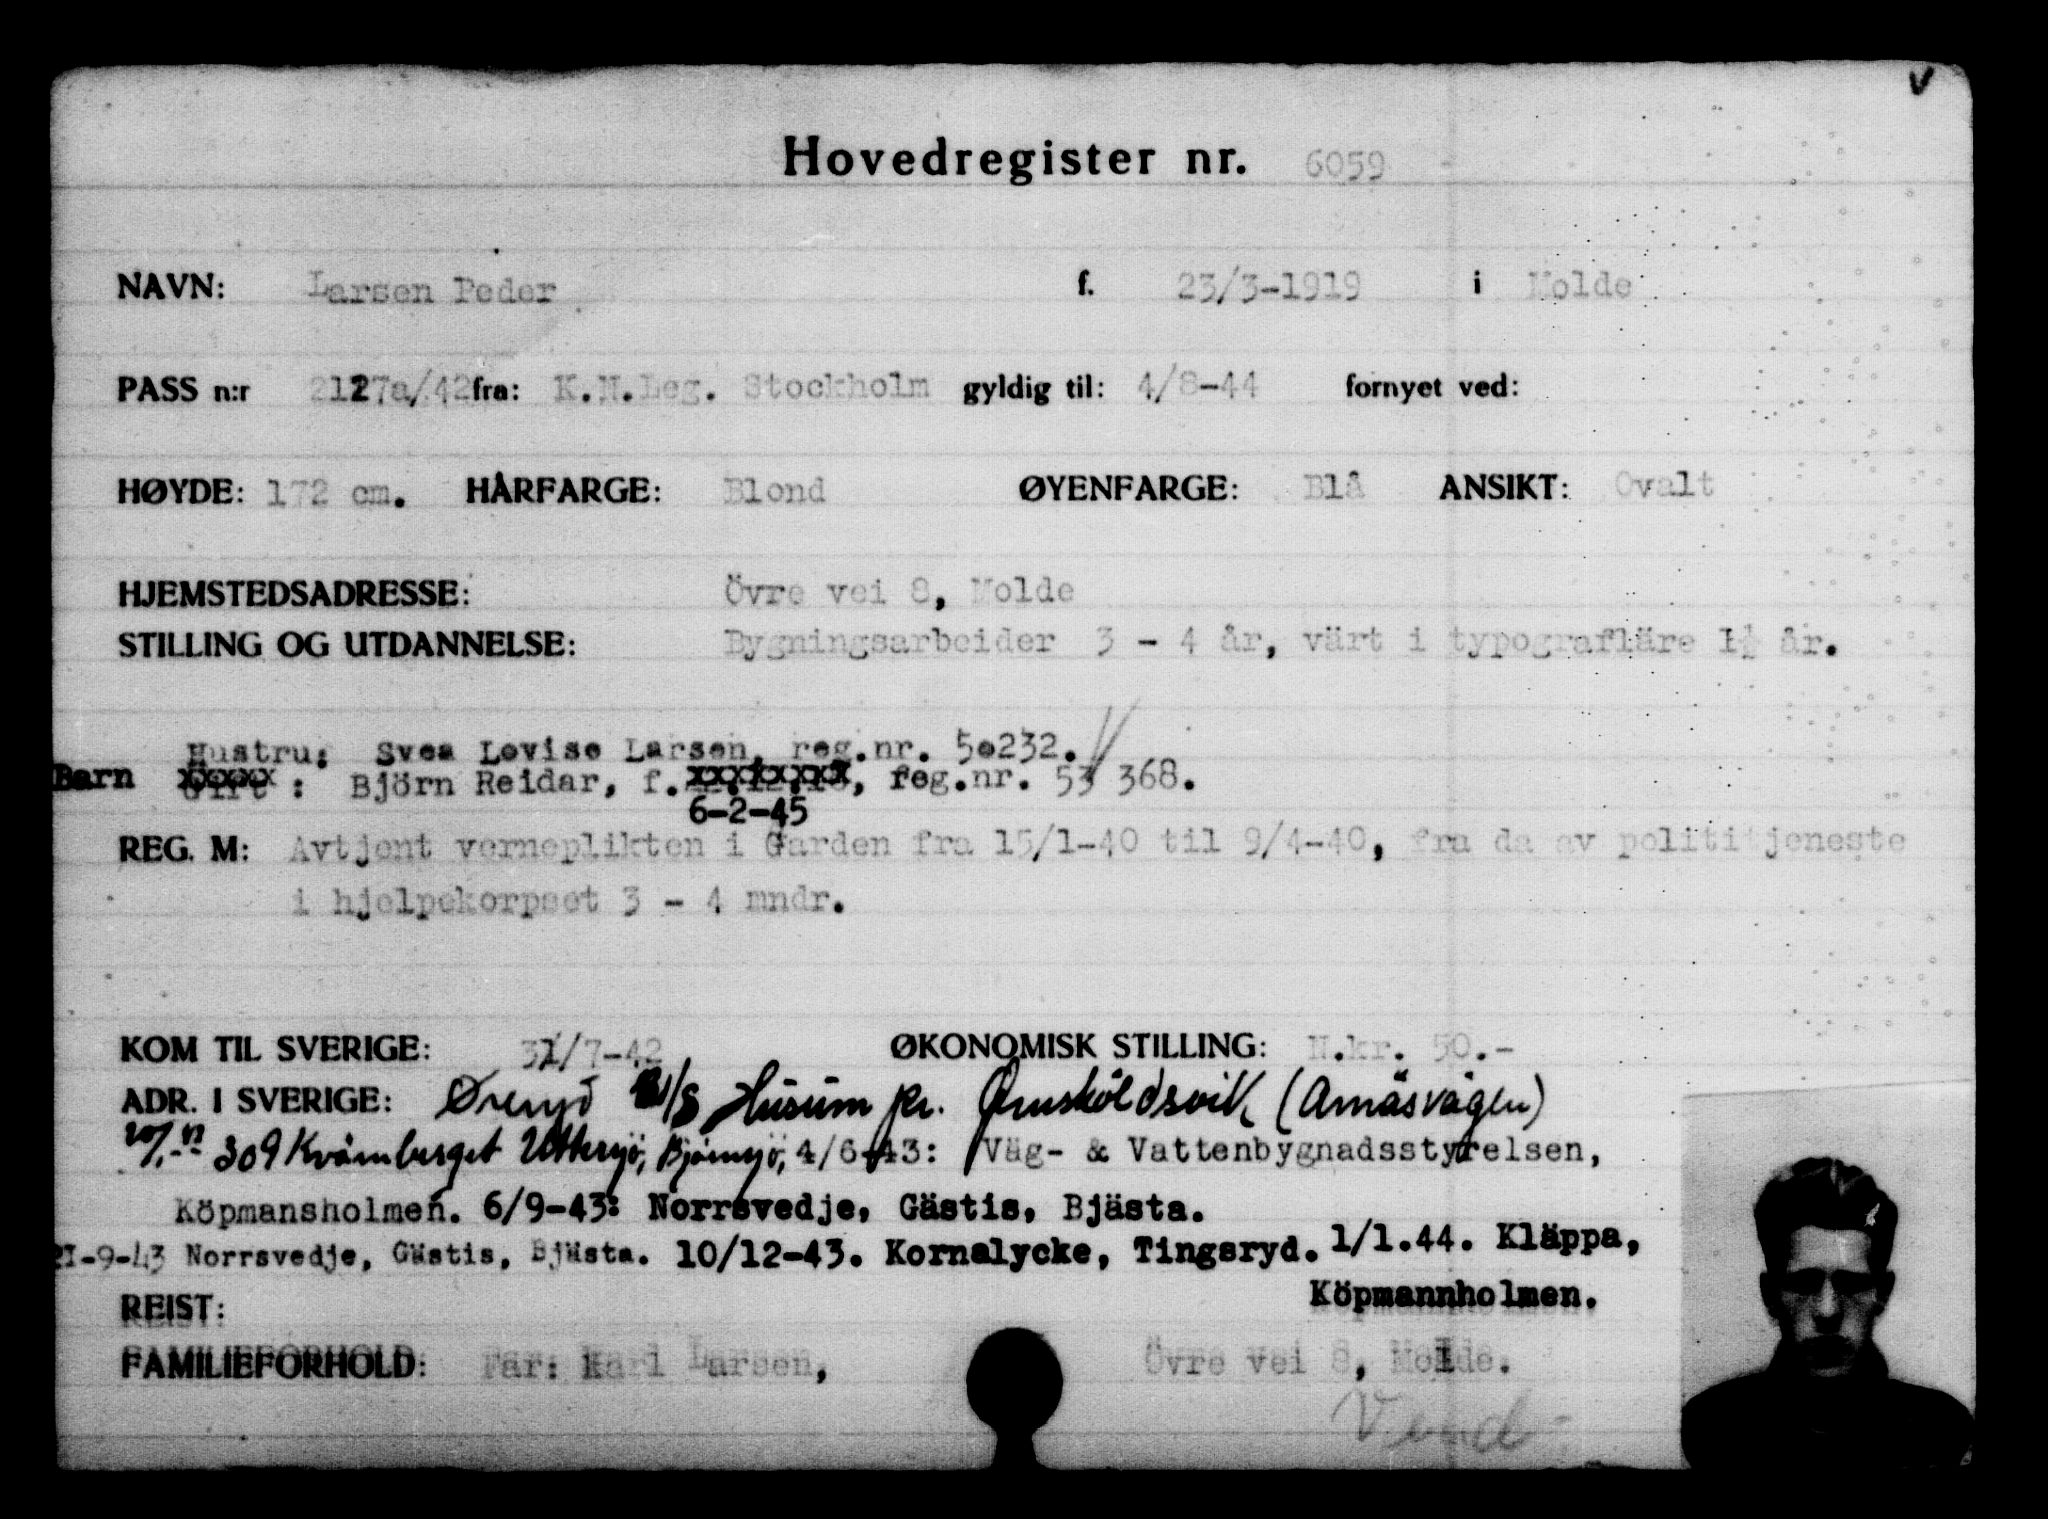 V
Hovedregister nr. 6059
NAVN: Larsen Peder f. 23/3-1919 i Molde
PASS n:r 2127a/42 fra: K.N.Leg. Stockholm gyldig til: 4/8-44 fornyet ved:
HØYDE: 172 cm. HÅRFARGE: Blond ØYENFARGE: Blå ANSIKT: Ovalt
HJEMSTEDSADRESSE: Övre vei 8, Molde
STILLING OG UTDANNELSE: Bygningsarbeider 3 - 4 år, värt i typografläre 1½ år.
Hustru: Svea Lovise Larsen, reg.nr. 50232.
Barn : Björn Reidar, f. reg.nr. 53 368.
6-2-45
REG. M: Avtjent verneplikten i Garden fra 15/1-40 til 9/4-40, fra da av polititjeneste
i hjelpekorpset 3 - 4 mndr.
KOM TIL SVERIGE: 31/7-42 ØKONOMISK STILLING: N.kr. 50.-
ADR. I SVERIGE: /8 Husum pr. Ørnsköldsvik (Arnäsvägen)
309 Kvärnberget 4/6-43: Väg- & Vattenbygnadsstyrelsen,
Köpmansholmen. 6/9-43: Norrsvedje, Gästis, Bjästa.
21-9-43 Norrsvedje, Gästis, Bjästa. 10/12-43. Kornalycke, Tingsryd. 1/1.44. Kläppa,
Köpmannholmen.
REIST:
FAMILIEFORHOLD: Far: Karl Larsen, Övre vei 8, Molde.
Vend